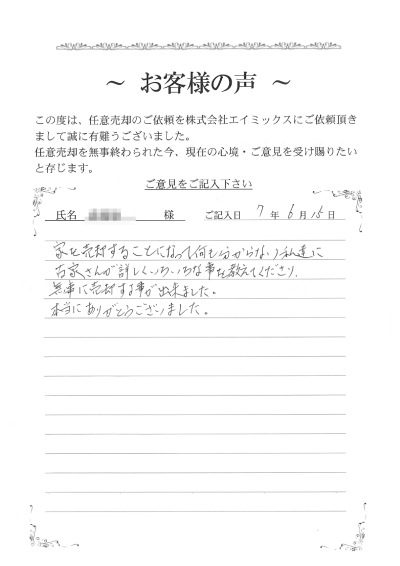 ～ お客様の声 ～
この度は、任意売却のご依頼を株式会社エイミックスにご依頼頂き
まして誠に有難うございました。
任意売却を無事終わられた今、現在の心境・ご意見を受け賜りたい
と存じます。
ご意見をご記入下さい
氏名 様 ご記入日 7 年 6 月 15 日
家を売却することになって何も分からない私達に
古家さんが詳しくいろいろな事を教えてくださり、
無事に売却する事が出来ました。
本当にありがとうございました。